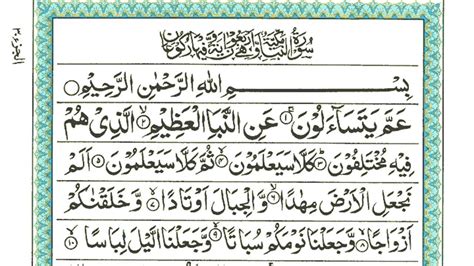 سُوْرَةُ النَّبَاِ مَكِّيَّةٌ وَّهِيَ اَرْبَعُوْنَ اٰيَةً وَّفِيْهَا رُكُوْعَانِ
بِسْمِ اللهِ الرَّحْمٰنِ الرَّحِيْمِ
عَمَّ يَتَسَآءَلُوْنَ ۚ۝۱ عَنِ النَّبَاِ الْعَظِيْمِ ۙ۝۲ الَّذِيْ هُمْ
فِيْهِ مُخْتَلِفُوْنَ ؕ۝۳ كَلَّا سَيَعْلَمُوْنَ ۙ۝۴ ثُمَّ كَلَّا سَيَعْلَمُوْنَ ۝۵ اَلَمْ
نَجْعَلِ الْاَرْضَ مِهٰدًا ۙ۝۶ وَّالْجِبَالَ اَوْتَادًا ۪ۙ۝۷ وَّخَلَقْنٰكُمْ
اَزْوَاجًا ۙ۝۸ وَّجَعَلْنَا نَوْمَكُمْ سُبَاتًا ۙ۝۹ وَّجَعَلْنَا الَّيْلَ لِبَاسًا ۙ۝۱۰